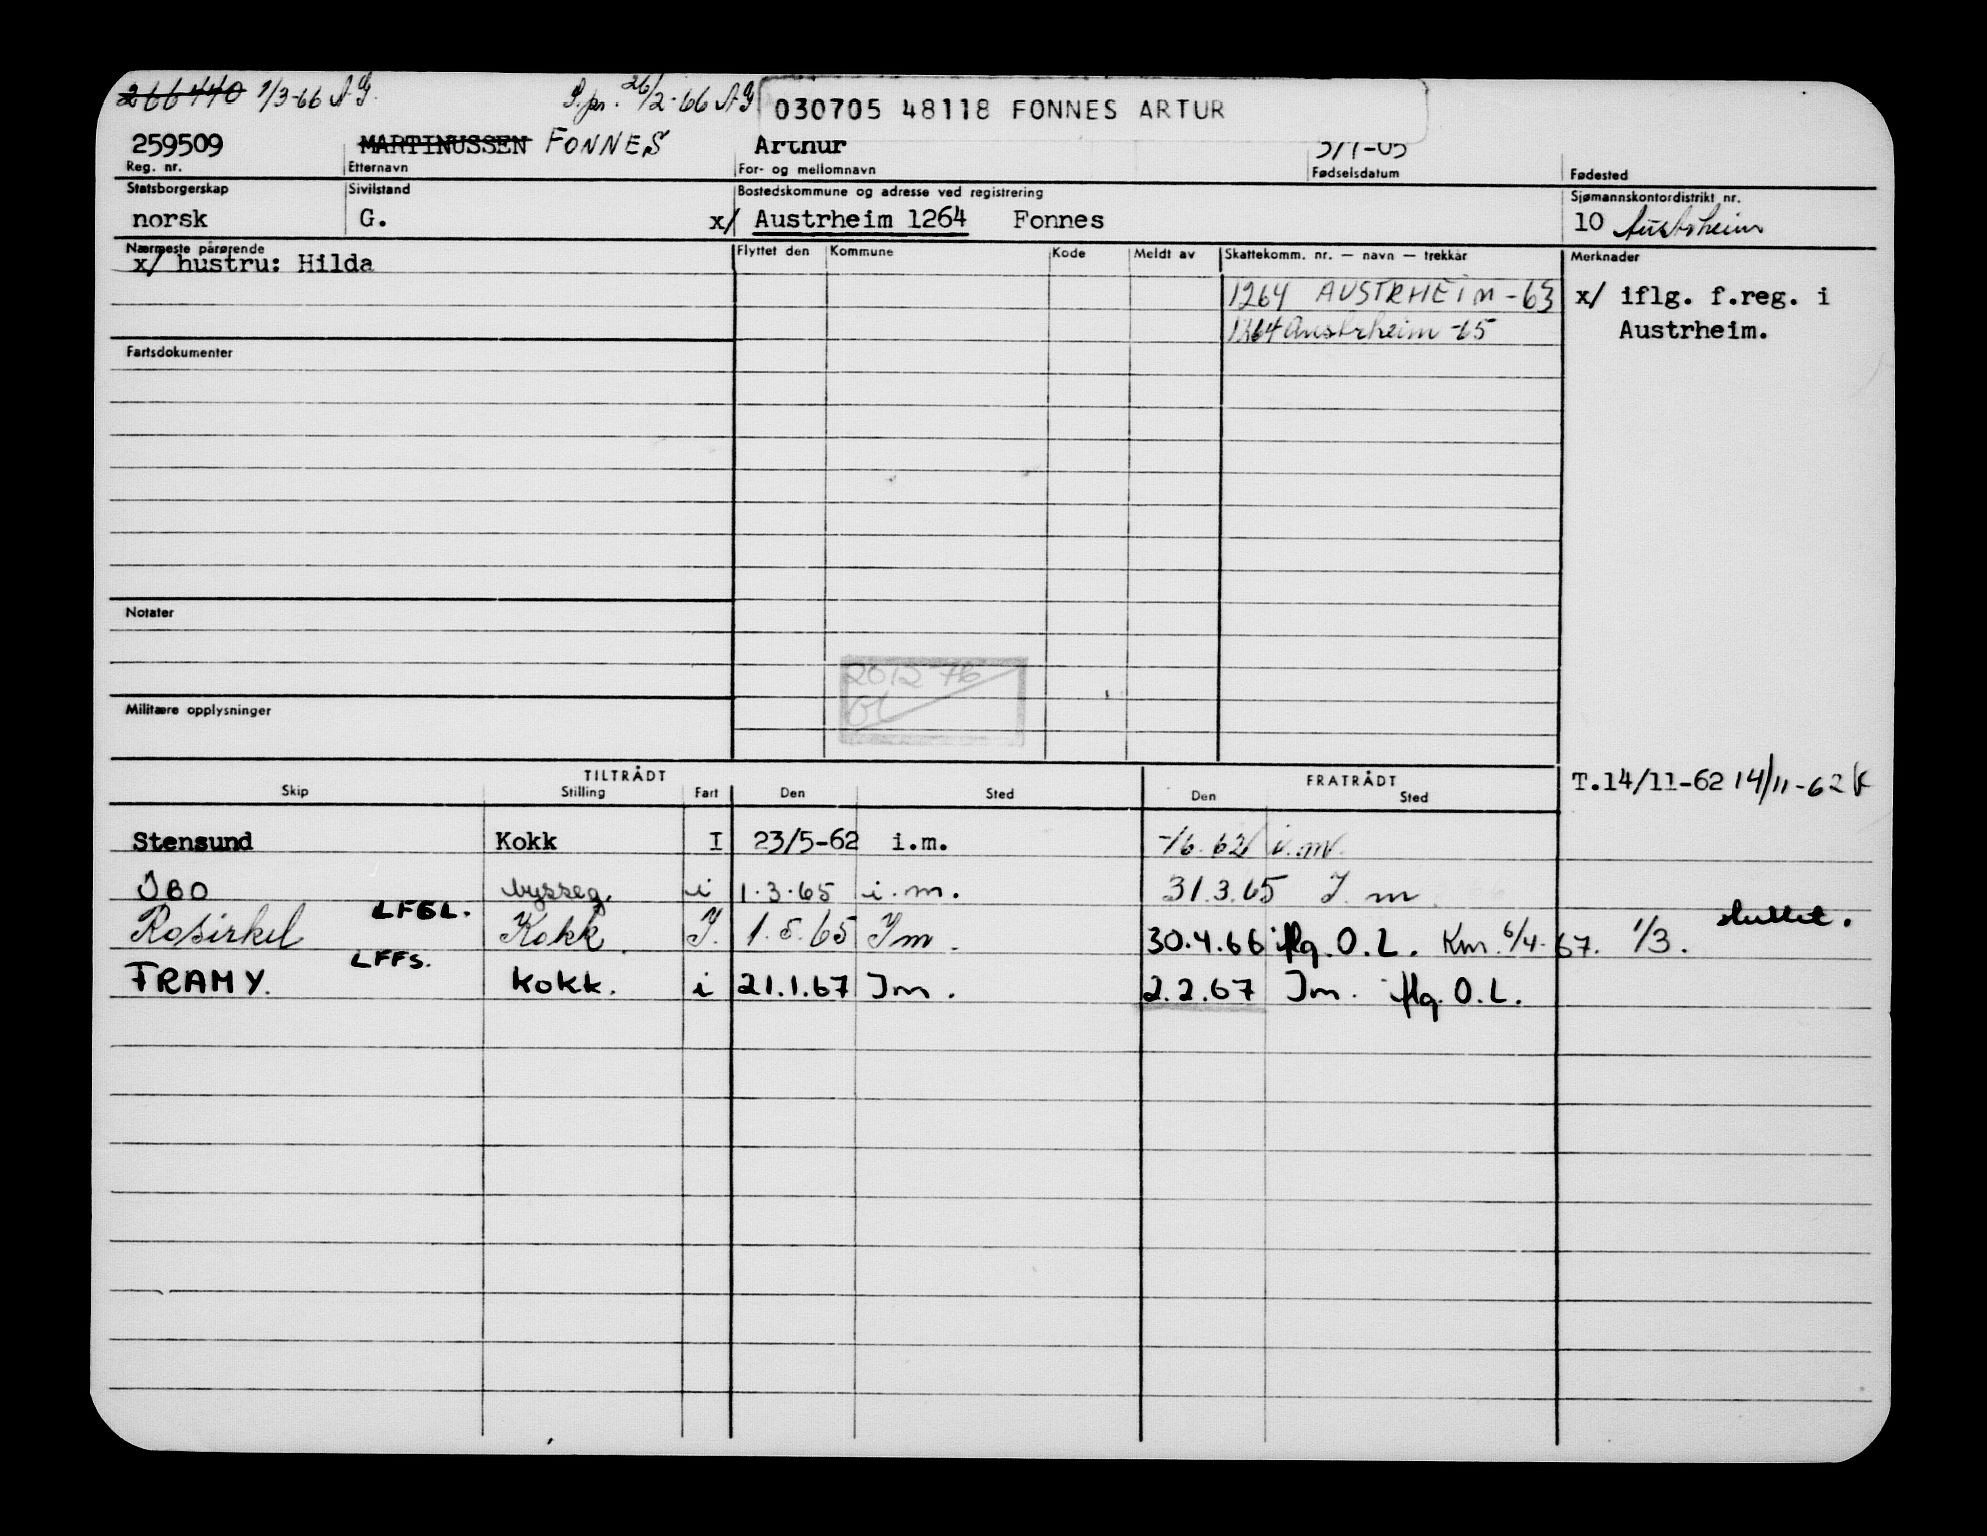 266440 1/3-66 A.G. P.pr. 26/2-66 A.G
030705 48118 FONNES ARTUR
259509 MARTINUSSEN FONNES Arthur 3/7-05
Reg. nr. Etternavn For- og mellomnavn Fødselsdatum Fødested
Statsborgerskap Sivilstand Bostedskommune og adresse ved registrering Sjømannskontordistrikt nr.
norsk G. x/ Austrheim 1264 Fonnes 10 Austrheim
Nærmeste pårørende Flyttet den Kommune Kode Meldt av Skattekomm. nr. — navn — trekkår Merknader
x/ hustru: Hilda
1264 AUSTRHEIM - 63 x/ iflg. f.reg. i
1264 Austrheim -65 Austrheim.
Fartsdokumenter
Notater
2012 76
Militære opplysninger
TILTRÅDT FRATRÅDT T.14/11-62 14/11-62
Skip Stilling Fart Den Sted Den Sted
Stensund Kokk I 23/5-62 i.m. -/6.62 i.m.
IBO bysseg. i 1.3.65 i.m. 31.3.65 I m
LFGL. sluttet.
Rosirkel Kokk I. 1.5.65 Im. 30.4.66 iflg. O.L. Km. 6/4-67. 1/3.
LFFS.
FRAMY. Kokk. i 21.1.67 Im. 2.2.67 Im. iflg. O.L.